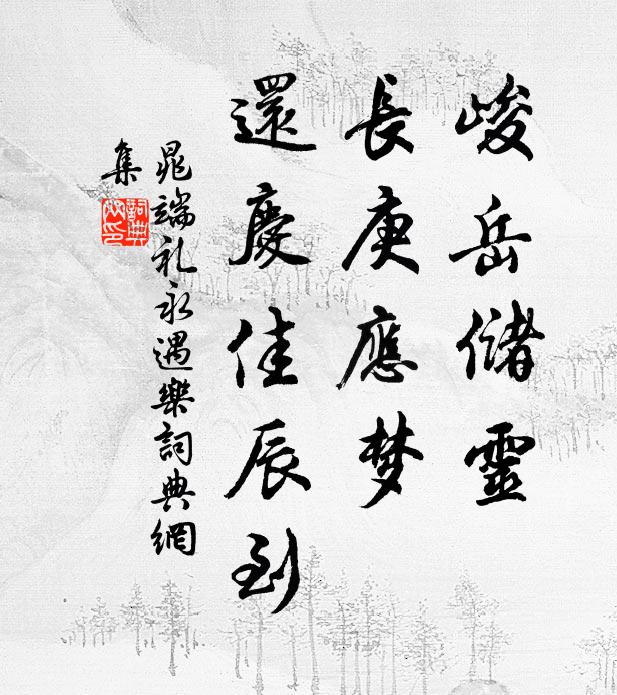 峻岳儲靈
長庚應梦
還慶佳辰到
晁端礼永遇樂詞典網
集
詞典網印